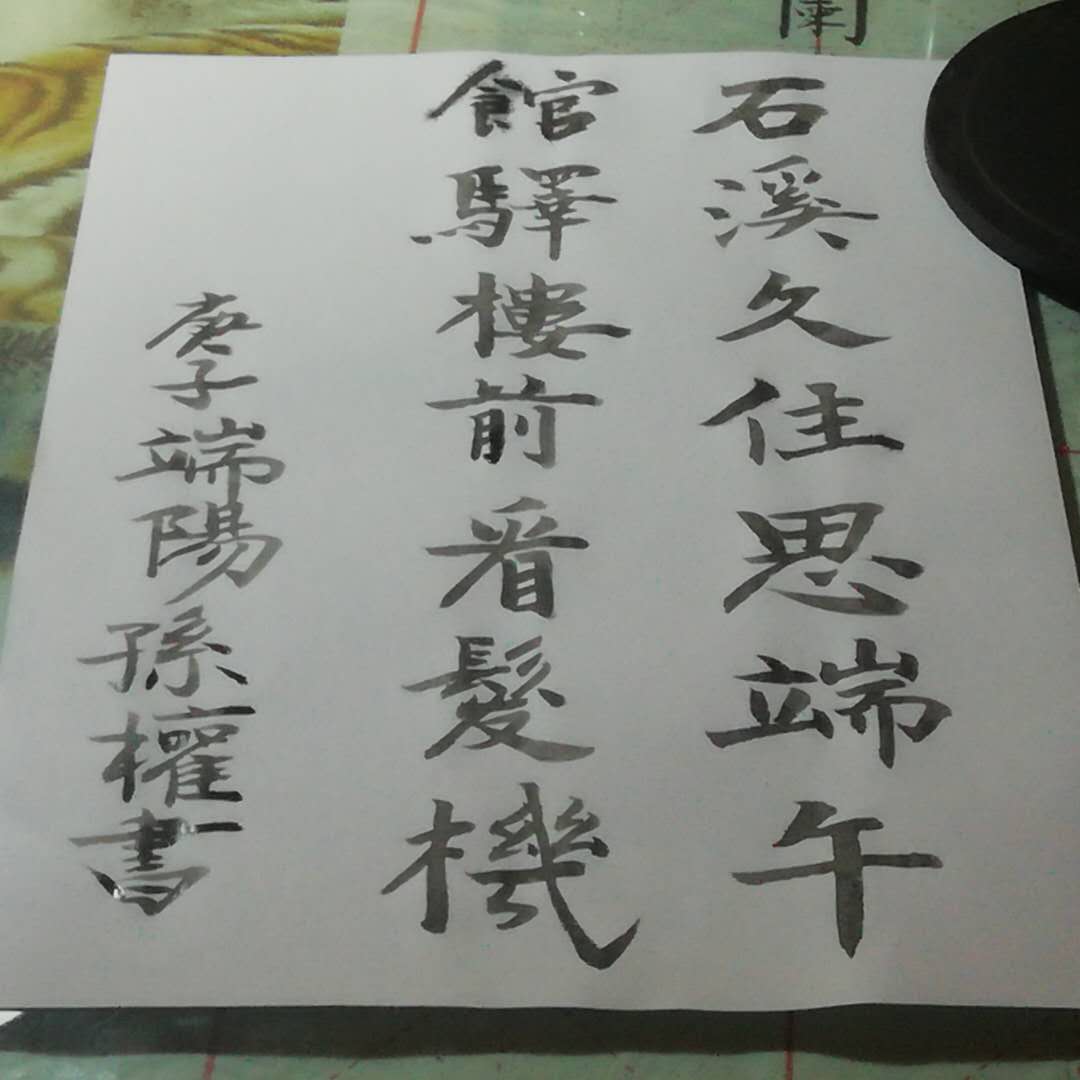 石溪久住思端午
館驛樓前看髮機
庚子端陽孫權書
蘭